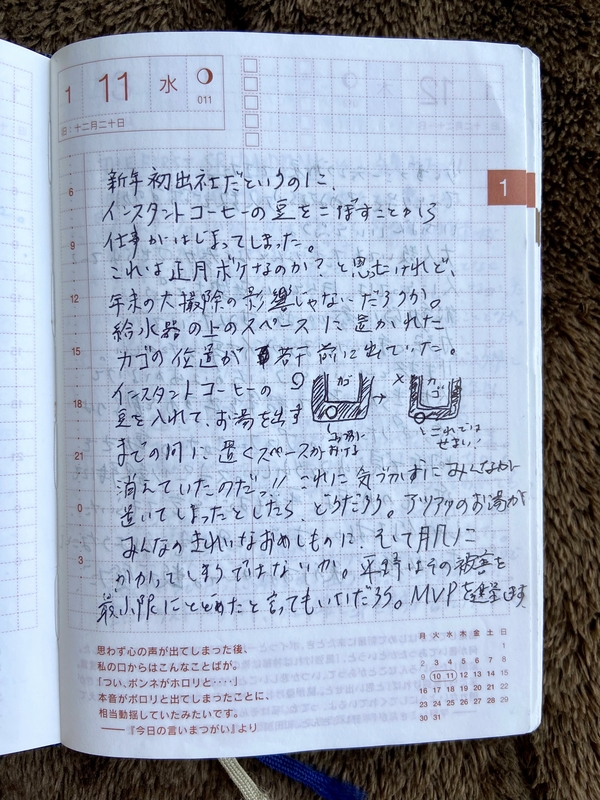 1 11 水
011
旧:十二月二十日
1
6
9
12
15
18
21
0
3
新年初出社だというのに、
インスタントコーヒーの豆をこぼすことから
仕事がはじまってしまった。
これは正月ボケなのか?と思ったけれど、
年末の大掃除の影響じゃないだろうか。
給水器の上のスペースに置かれた
カゴの位置が 若干前に出ていた。
インスタントコーヒーの
豆を入れて、お湯を出す
までの間に置くスペースが
消えていたのだっ!! これに気づかずにみんなが
置いてしまったとしたら、どうだろう。アツアツのお湯が
みんなのきれいなおめしものに、そして肌に
かかってしまうではないか。平野はその被害を
最小限にとどめたと言ってもいいだろう。MVPを進呈します
カゴ
→
×
カゴ
おける
これでは
せまい!
思わず心の声が出てしまった後、
私の口からはこんなことばが。
「つい、ボンネがホロリと‥‥」
本音がポロリと出てしまったことに、
相当動揺していたみたいです。
──『今日の言いまつがい』より
月 火 水 木 金 土 日
1
2 3 4 5 6 7 8
9 10 11 12 13 14 15
16 17 18 19 20 21 22
23 24 25 26 27 28 29
30 31